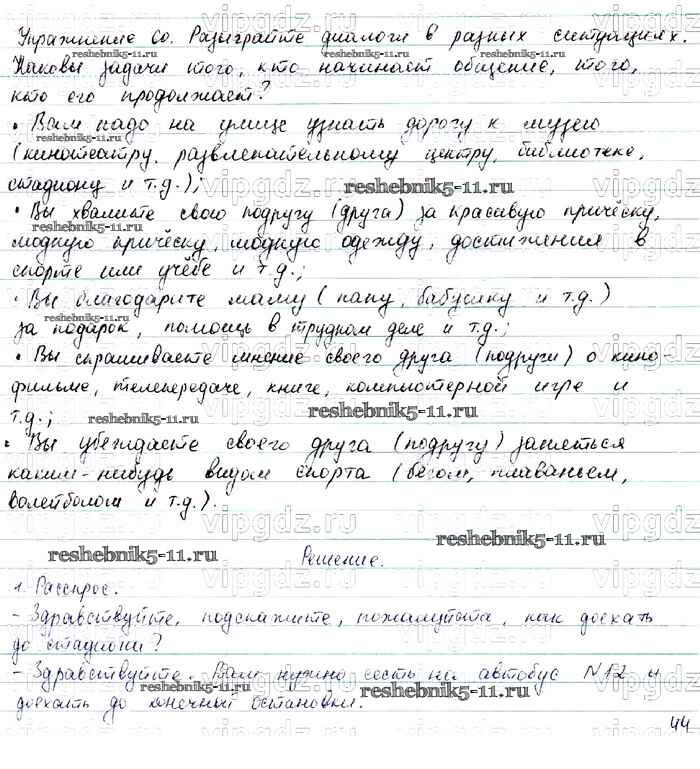 Упражнение 60. Разыграйте диалоги в разных ситуациях.
Каковы задачи того, кто начинает общение, того,
кто его продолжает?
• Вам надо на улице узнать дорогу к музею
(кинотеатру, развлекательному центру, библиотеке,
стадиону и т.д.);
• Вы хвалите свою подругу (друга) за красивую причёску,
модную причёску, модную одежду, достижения в
спорте или учёбе и т.д.;
• Вы благодарите маму (папу, бабушку и т.д.)
за подарок, помощь в трудном деле и т.д.;
• Вы спрашиваете мнение своего друга (подруги) о кино-
фильме, телепередаче, книге, компьютерной игре и
т.д.;
• Вы убеждаете своего друга (подругу) заняться
каким-нибудь видом спорта (бегом, плаваньем,
волейболом и т.д.).
Решение.
1. Расспрос.
- Здравствуйте, подскажите, пожалуйста, как доехать
до стадиона?
- Здравствуйте. Вам нужно сесть на автобус N12 и
доехать до конечной остановки.
44
vipgdz.ru
reshebnik5-11.ru